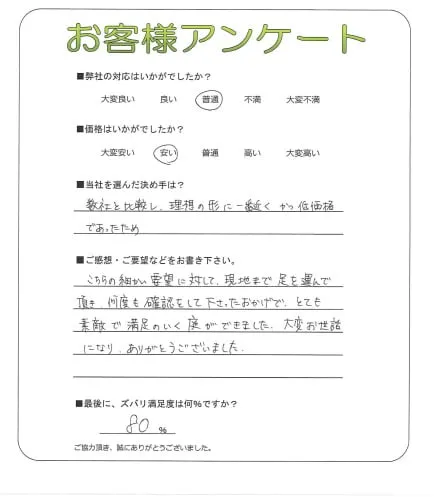 お客様アンケート
■弊社の対応はいかがでしたか?
大変良い 良い 普通 不満 大変不満
■価格はいかがでしたか?
大変安い 安い 普通 高い 大変高い
■当社を選んだ決め手は?
数社と比較し、理想の形に一番近く かつ 低価格
であったため
■ご感想・ご要望などをお書き下さい。
こちらの細かい要望に対して、現地まで足を運んで
頂き、何度も確認をして下さったおかげで、とても
素敵で満足のいく庭ができました。大変お世話
になり、ありがとうございました。
■最後に、ズバリ満足度は何%ですか?
80 %
ご協力頂き、誠にありがとうございました。